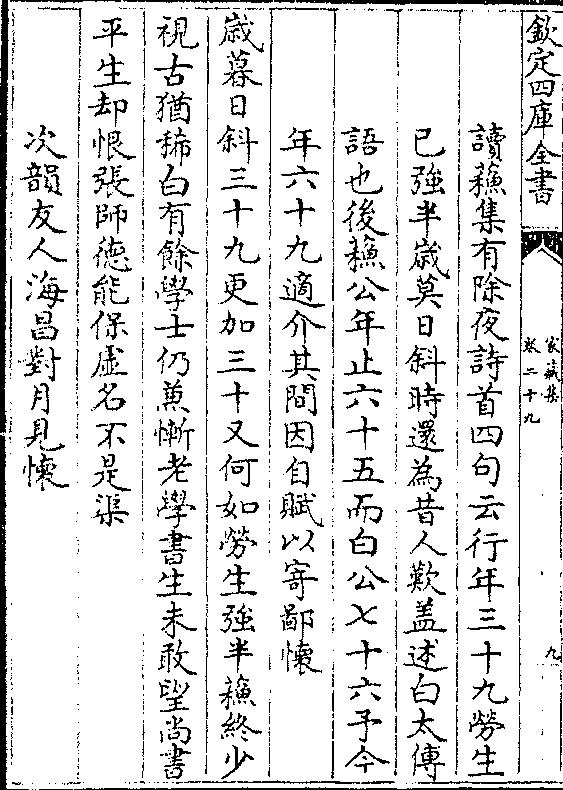 欽定四庫全書
家藏集
卷二十九
九
讀蘓集有除夜詩首四句云行年三十九勞生
已強半歳莫日斜時還為昔人歎盖述白太傅
語也後蘓公年止六十五而白公七十六予今
年六十九適介其間因自賦以寄鄙懷
歳暮日斜三十九更加三十又何如勞生強半蘓終少
視古猶稀白有餘學士仍兼慚老學書生未敢望尚書
平生却恨張師德能保虚名不是渠
次韻友人海昌對月見懷